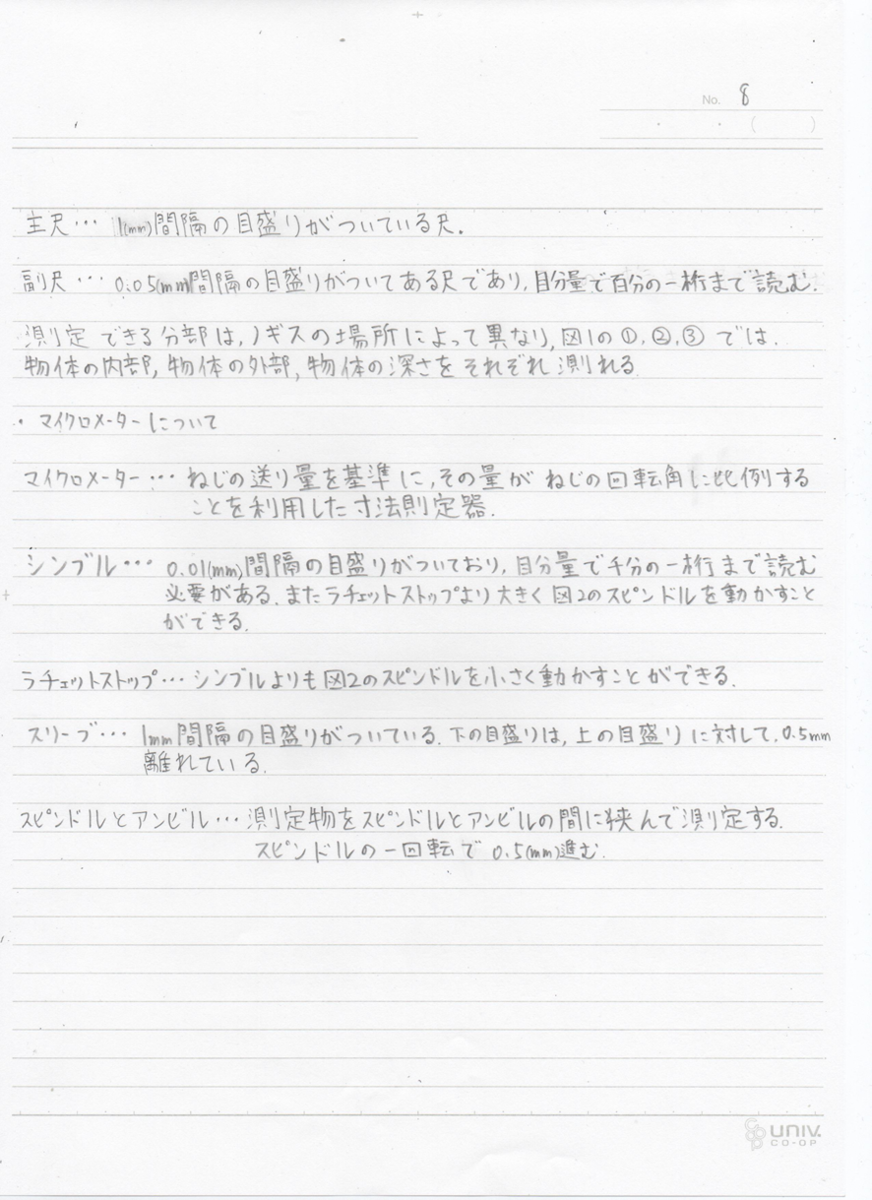 No. 8
主尺… 1(mm)間隔の目盛りがついている尺.
副尺… 0.05(mm)間隔の目盛りがついてある尺であり,目分量で百分の一桁まで読む.
測定できる分部は,ノギスの場所によって異なり,図1の①,②,③では.
物体の内部,物体の外部,物体の深さをそれぞれ測れる.
・マイクロメーターについて
マイクロメーター… ねじの送り量を基準に,その量がねじの回転角に比例する
ことを利用した寸法則定器.
シンブル… 0.01(mm)間隔の目盛りがついており,目分量で千分の一桁まで読む
必要がある.またラチェットストップより大きく図2のスピンドルを動かすこと
ができる.
ラチェットストップ…シンブルよりも図2のスピンドルを小さく動かすことができる.
スリーブ… 1mm間隔の目盛りがついている.下の目盛りは,上の目盛りに対して.0.5mm
離れている.
スピンドルとアンビル…測定物をスピンドルとアンビルの間に挟んで測定する.
スピンドルの一回転で0.5(mm)進む.
UNIV.
CO-OP